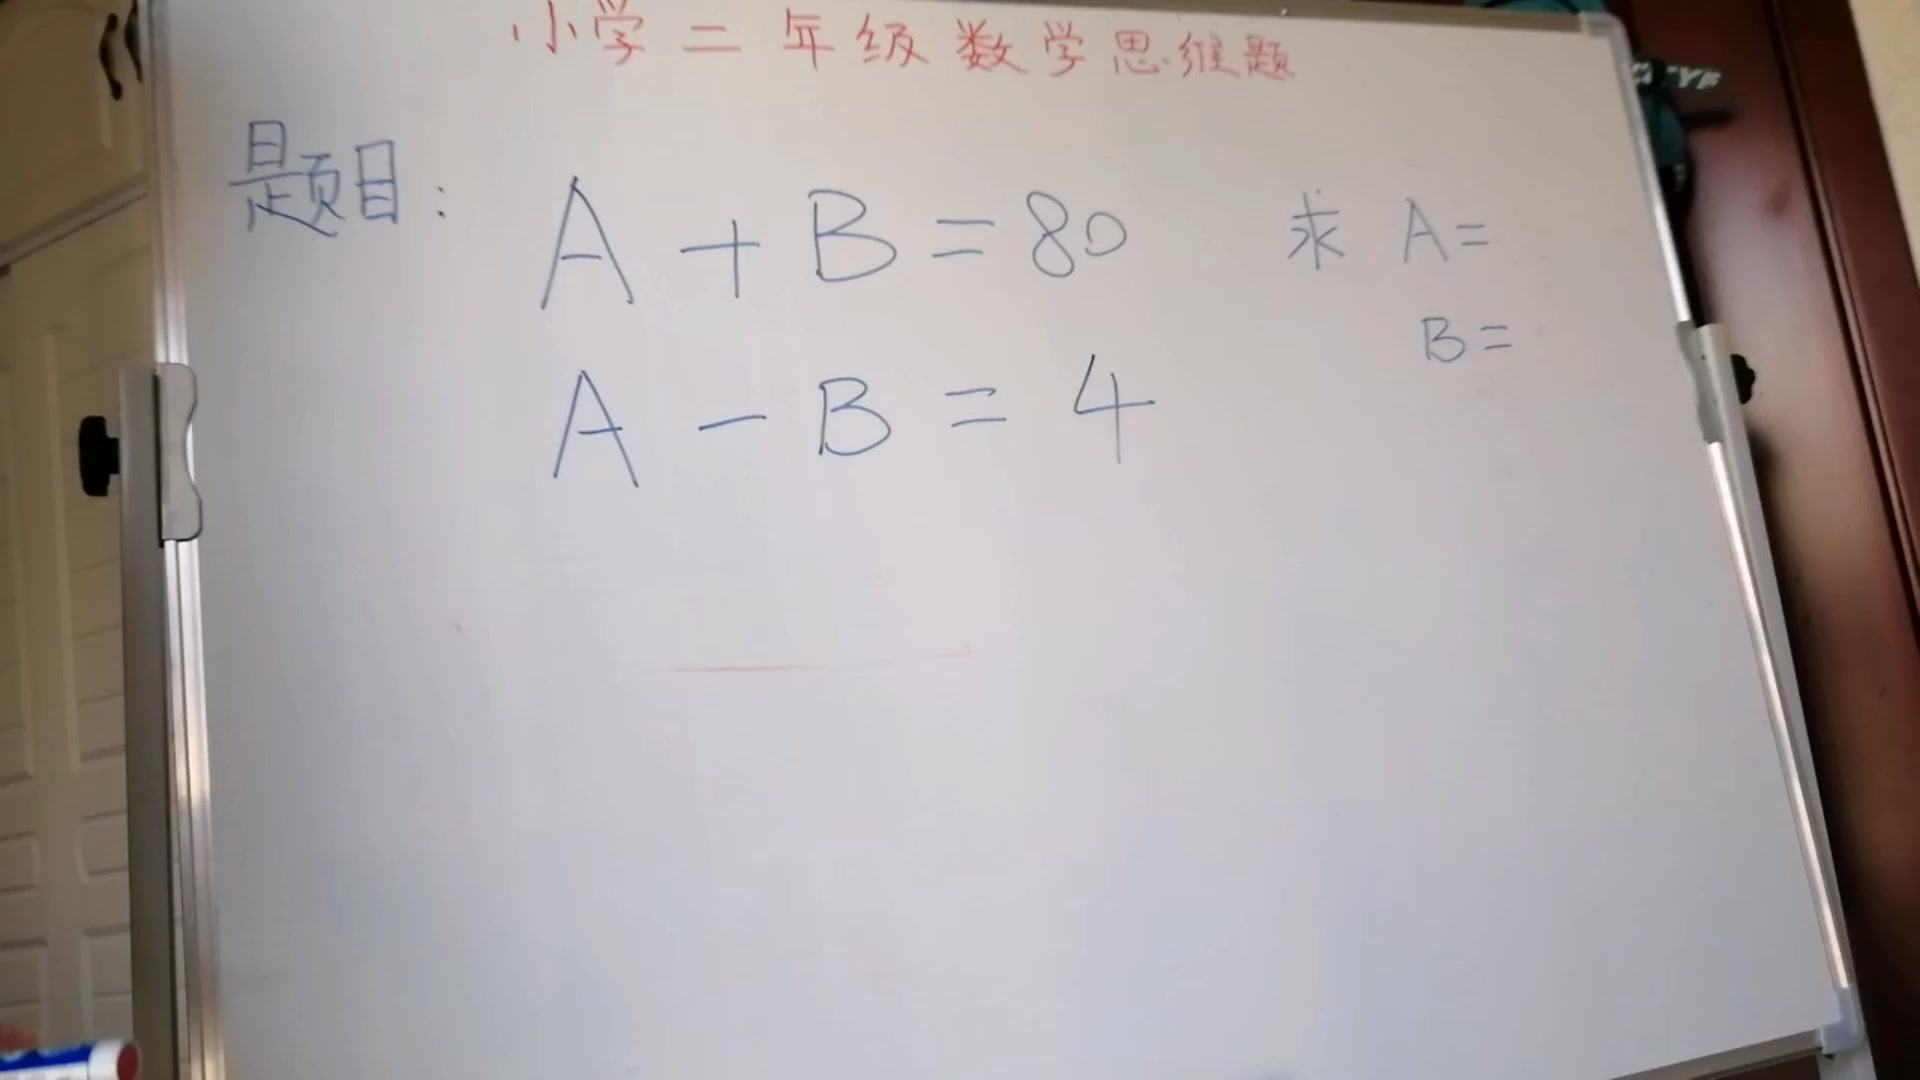 小学二年级数学思维题
题目: A + B = 80 求 A =
B =
A - B = 4